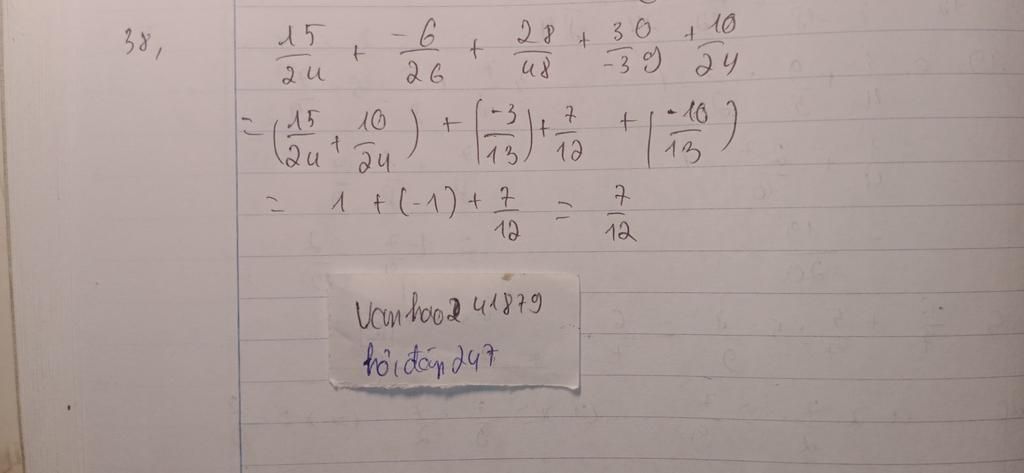 38, 15/24 + -6/26 + 28/48 + 30/-39 + 10/24
= (15/24 + 10/24) + (-3/13) + 7/12 + (-10/13)
= 1 + (-1) + 7/12 = 7/12
Vanhao2 41879
hỏi đáp 247